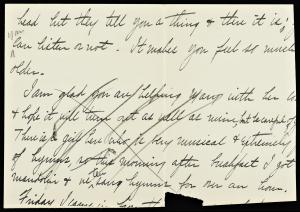 head but they tell you a thing & there it is; you
can listen or not. It makes you feel so much
older.
I am glad you are helping Mary with her
& hope it will turn out as well as mine, for example.
There is a girl in who is very musical & extremely
of hymns, so this morning after breakfast I got
mandolin & we sang hymns for over an hour.
Friday I came in